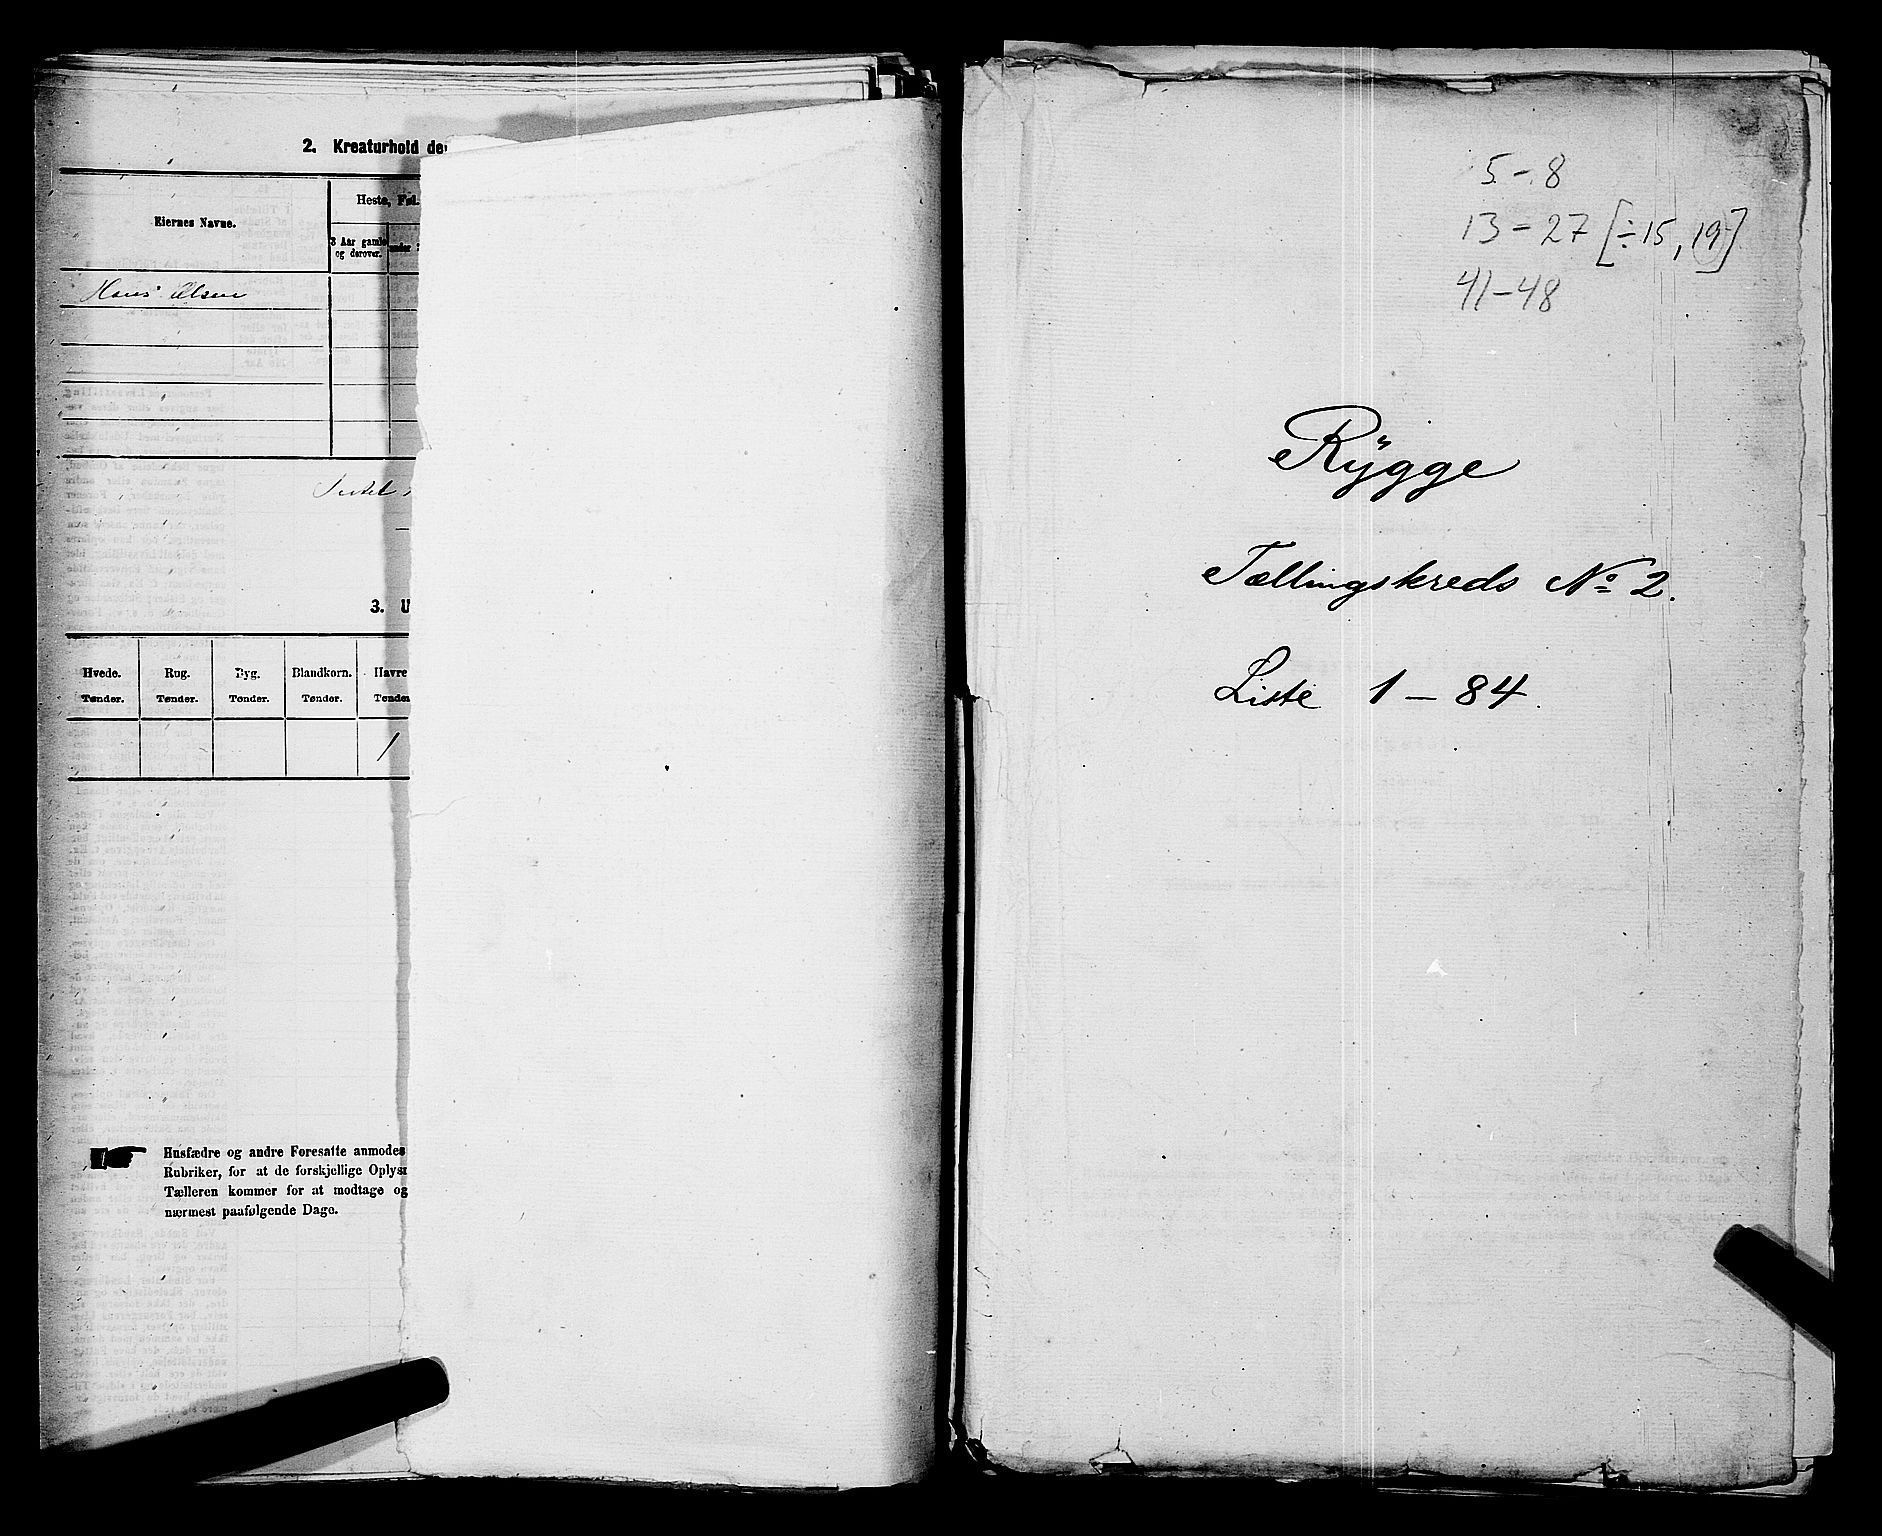 2. Kreaturhold de
Eiernes Navne.
Heste, Føl.
3 Aar gamle og derover.
under
Hans Olsen
3. U
Hvede. Rug. Byg. Blandkorn. Havre
Tønder. Tønder. Tønder. Tønder. Tønder
1
Husfædre og andre Foresatte anmodes
Rubriker, for at de forskjellige Oplys
Tælleren kommer for at modtage og
nærmest paafølgende Dage.
5 - 8
13 - 27 [÷ 15, 19]
41 - 48
Rÿgge
Tællingskreds No 2.
Liste 1 - 84.